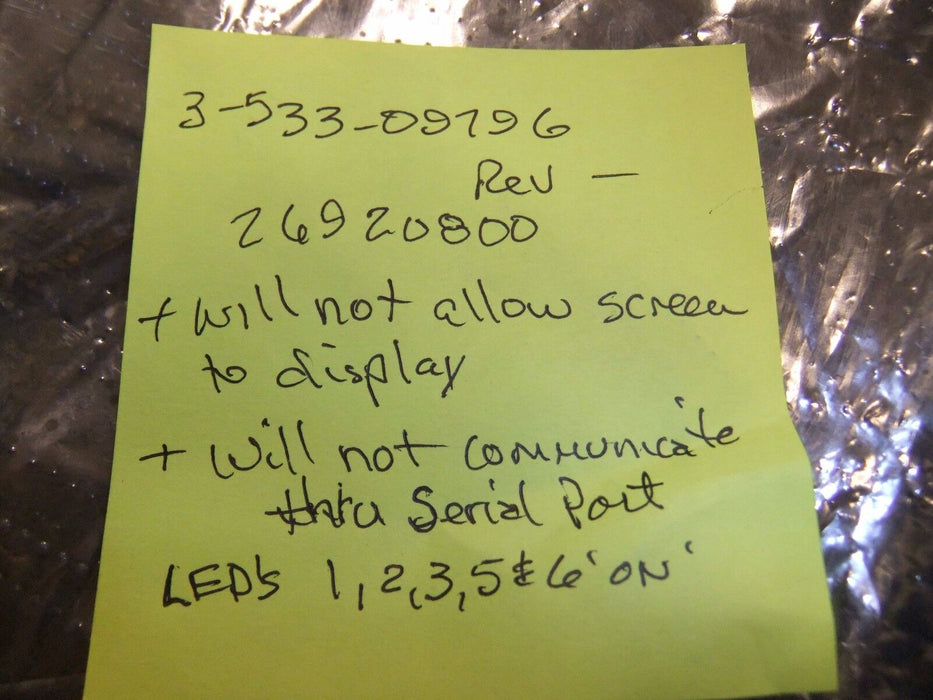 3-533-09796
Rev —
26920800
+ will not allow screen
to display
+ will not communicate
thru Serial Port
LED's 1,2,3,5 & 6 'ON'